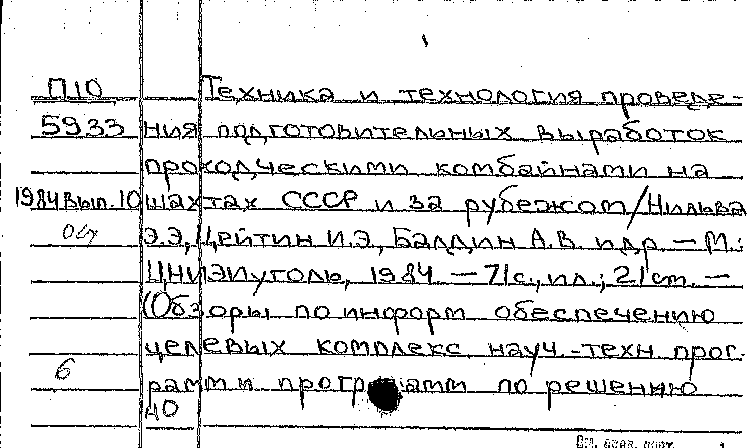 П10 Техника и технология проведе-
5933 ния подготовительных выработок
проходческими комбайнами на
1984 Вып. 10 шахтах СССР и за рубежом/Нильва
Э.Э, Цейтин И.Э, Балдин А.В. и др — М.:
ЦНИЭИуголь, 1984 — 71с., ил.; 21 см. —
(Обзоры по информ обеспечению
целевых комплекс науч.-техн прог-
6 рамм и программ по решению
40
См. доев. поот.